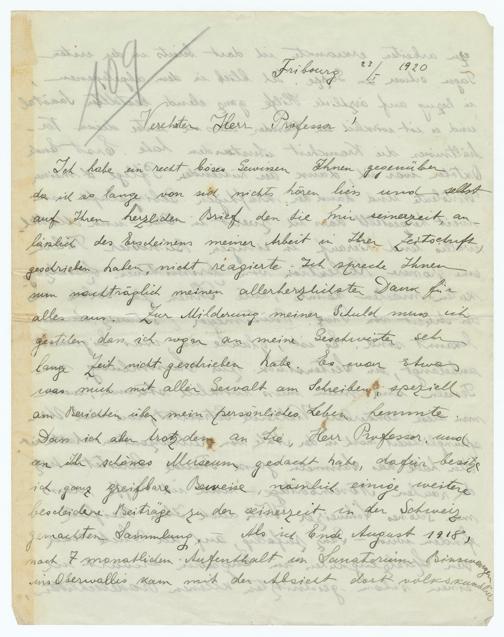 109
Fribourg 22/I 1920
Verehrter Herr Professor!
Ich habe ein recht böses Gewissen Ihnen gegenüber
da ich so lange von mir nichts hören liess und selbst
auf Ihren herzlichen Brief den Sie mir seinerzeit an-
lässlich des Erscheinens meiner Arbeit in Ihrer Zeitschrift
geschrieben haben, nicht reagierte. Ich spreche Ihnen
nun nachträglich meinen allerherzlichsten Dank für
alles aus. – Zur Milderung meiner Schuld muss ich
gestehen dass ich sogar an meine Geschwister sehr
lange Zeit nicht geschrieben habe. Es war Etwas
was mich mit aller Gewalt am Schreiben, speziell
am Berichten über mein persönliches Leben hemmte
Dass ich aber trotzdem an Sie, Herr Professor, und
an Ihr schönes Museum gedacht habe, dafür besitze
ich ganz greifbare Beweise, nämlich einige weitere
bescheidene Beiträge zu der seinerzeit in der Schweiz
gemachten Sammlung. Als ich Ende August 1918,
nach 7 monatlichen Aufenthalt im Sanatorium
ins Oberwallis kam mit der Absicht dort